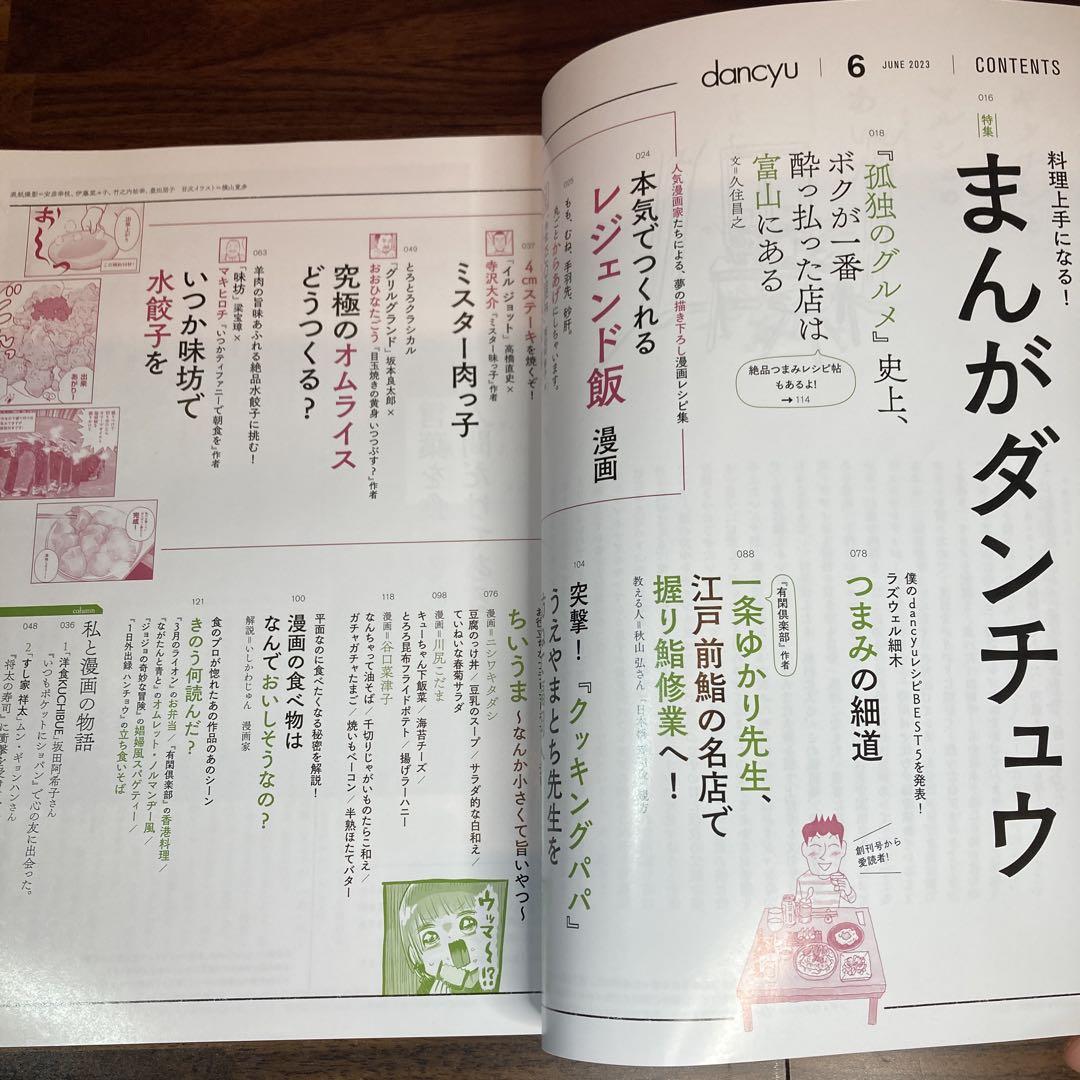 dancyu | 6 JUNE 2023 | CONTENTS
016
特集
料理上手になる!
まんがダンチュウ
018
『孤独のグルメ』史上、
ボクが一番
酔っ払った店は
富山にある
文=久住昌之
絶品つまみレシピ帖
もあるよ!
→114
人気漫画家たちによる、夢の描き下ろし漫画レシピ集
024
本気でつくれる
レジェンド飯 漫画
025
もも、むね、手羽先、砂肝。
丸ごとからあげにしちゃいます。
078
僕のdancyuレシピBEST5を発表!
ラズウェル細木
つまみの細道
創刊号から
愛読者!
088
『有閑倶楽部』作者
一条ゆかり先生、
江戸前鮨の名店で
握り鮨修業へ!
教える人=秋山 弘さん
104
突撃!『クッキングパパ』
うえやまとち先生を
037
4cmステーキを焼くぞ!
「イル ジョット」高橋直史×
寺沢大介『ミスター味っ子』作者
ミスター肉っ子
049
とろとろクラシカル
「グリルグランド」坂本良太郎×
おおひなたごう『目玉焼きの黄身 いつつぶす?』作者
究極のオムライス
どうつくる?
063
羊肉の旨味あふれる絶品水餃子に挑む!
「味坊」梁宝璋×
マキヒロチ『いつかティファニーで朝食を』作者
いつか味坊で
水餃子を
お〜っ
出来
あがり〜
完成!
ちいうま 〜なんか小さくて旨いやつ〜
076
漫画=ニシワキタダシ
豆腐のっけ丼/豆乳のスープ/サラダ的な白和え/
ていねいな春菊サラダ
098
漫画=川尻こだま
キューちゃん下飯菜/海苔チーズ/
とろろ昆布フライドポテト/揚げラーハニー
118
漫画=谷口菜津子
なんちゃって油そば/千切りじゃがいものたらこ和え/
ガチャガチャたまご/焼いもベーコン/半熟ほたてバター
ウッマ〜!?
100
平面なのに食べたくなる秘密を解説!
漫画の食べ物は
なんでおいしそうなの?
解説=いしかわじゅん 漫画家
121
食のプロが惚れたあの作品のあのシーン
きのう何読んだ?
『3月のライオン』のお弁当/『有閑倶楽部』の香港料理/
『ながたんと青と』のオムレット・ノルマンヂー風/
『ジョジョの奇妙な冒険』の娼婦風スパゲティー/
『1日外出録 ハンチョウ』の立ち食いそば
column
私と漫画の物語
036
1、洋食KUCHIBUE 坂田阿希子さん
『いつもポケットにショパン』で心の友に出会った。
048
2、すし家 祥太 ムン・ギョンハンさん